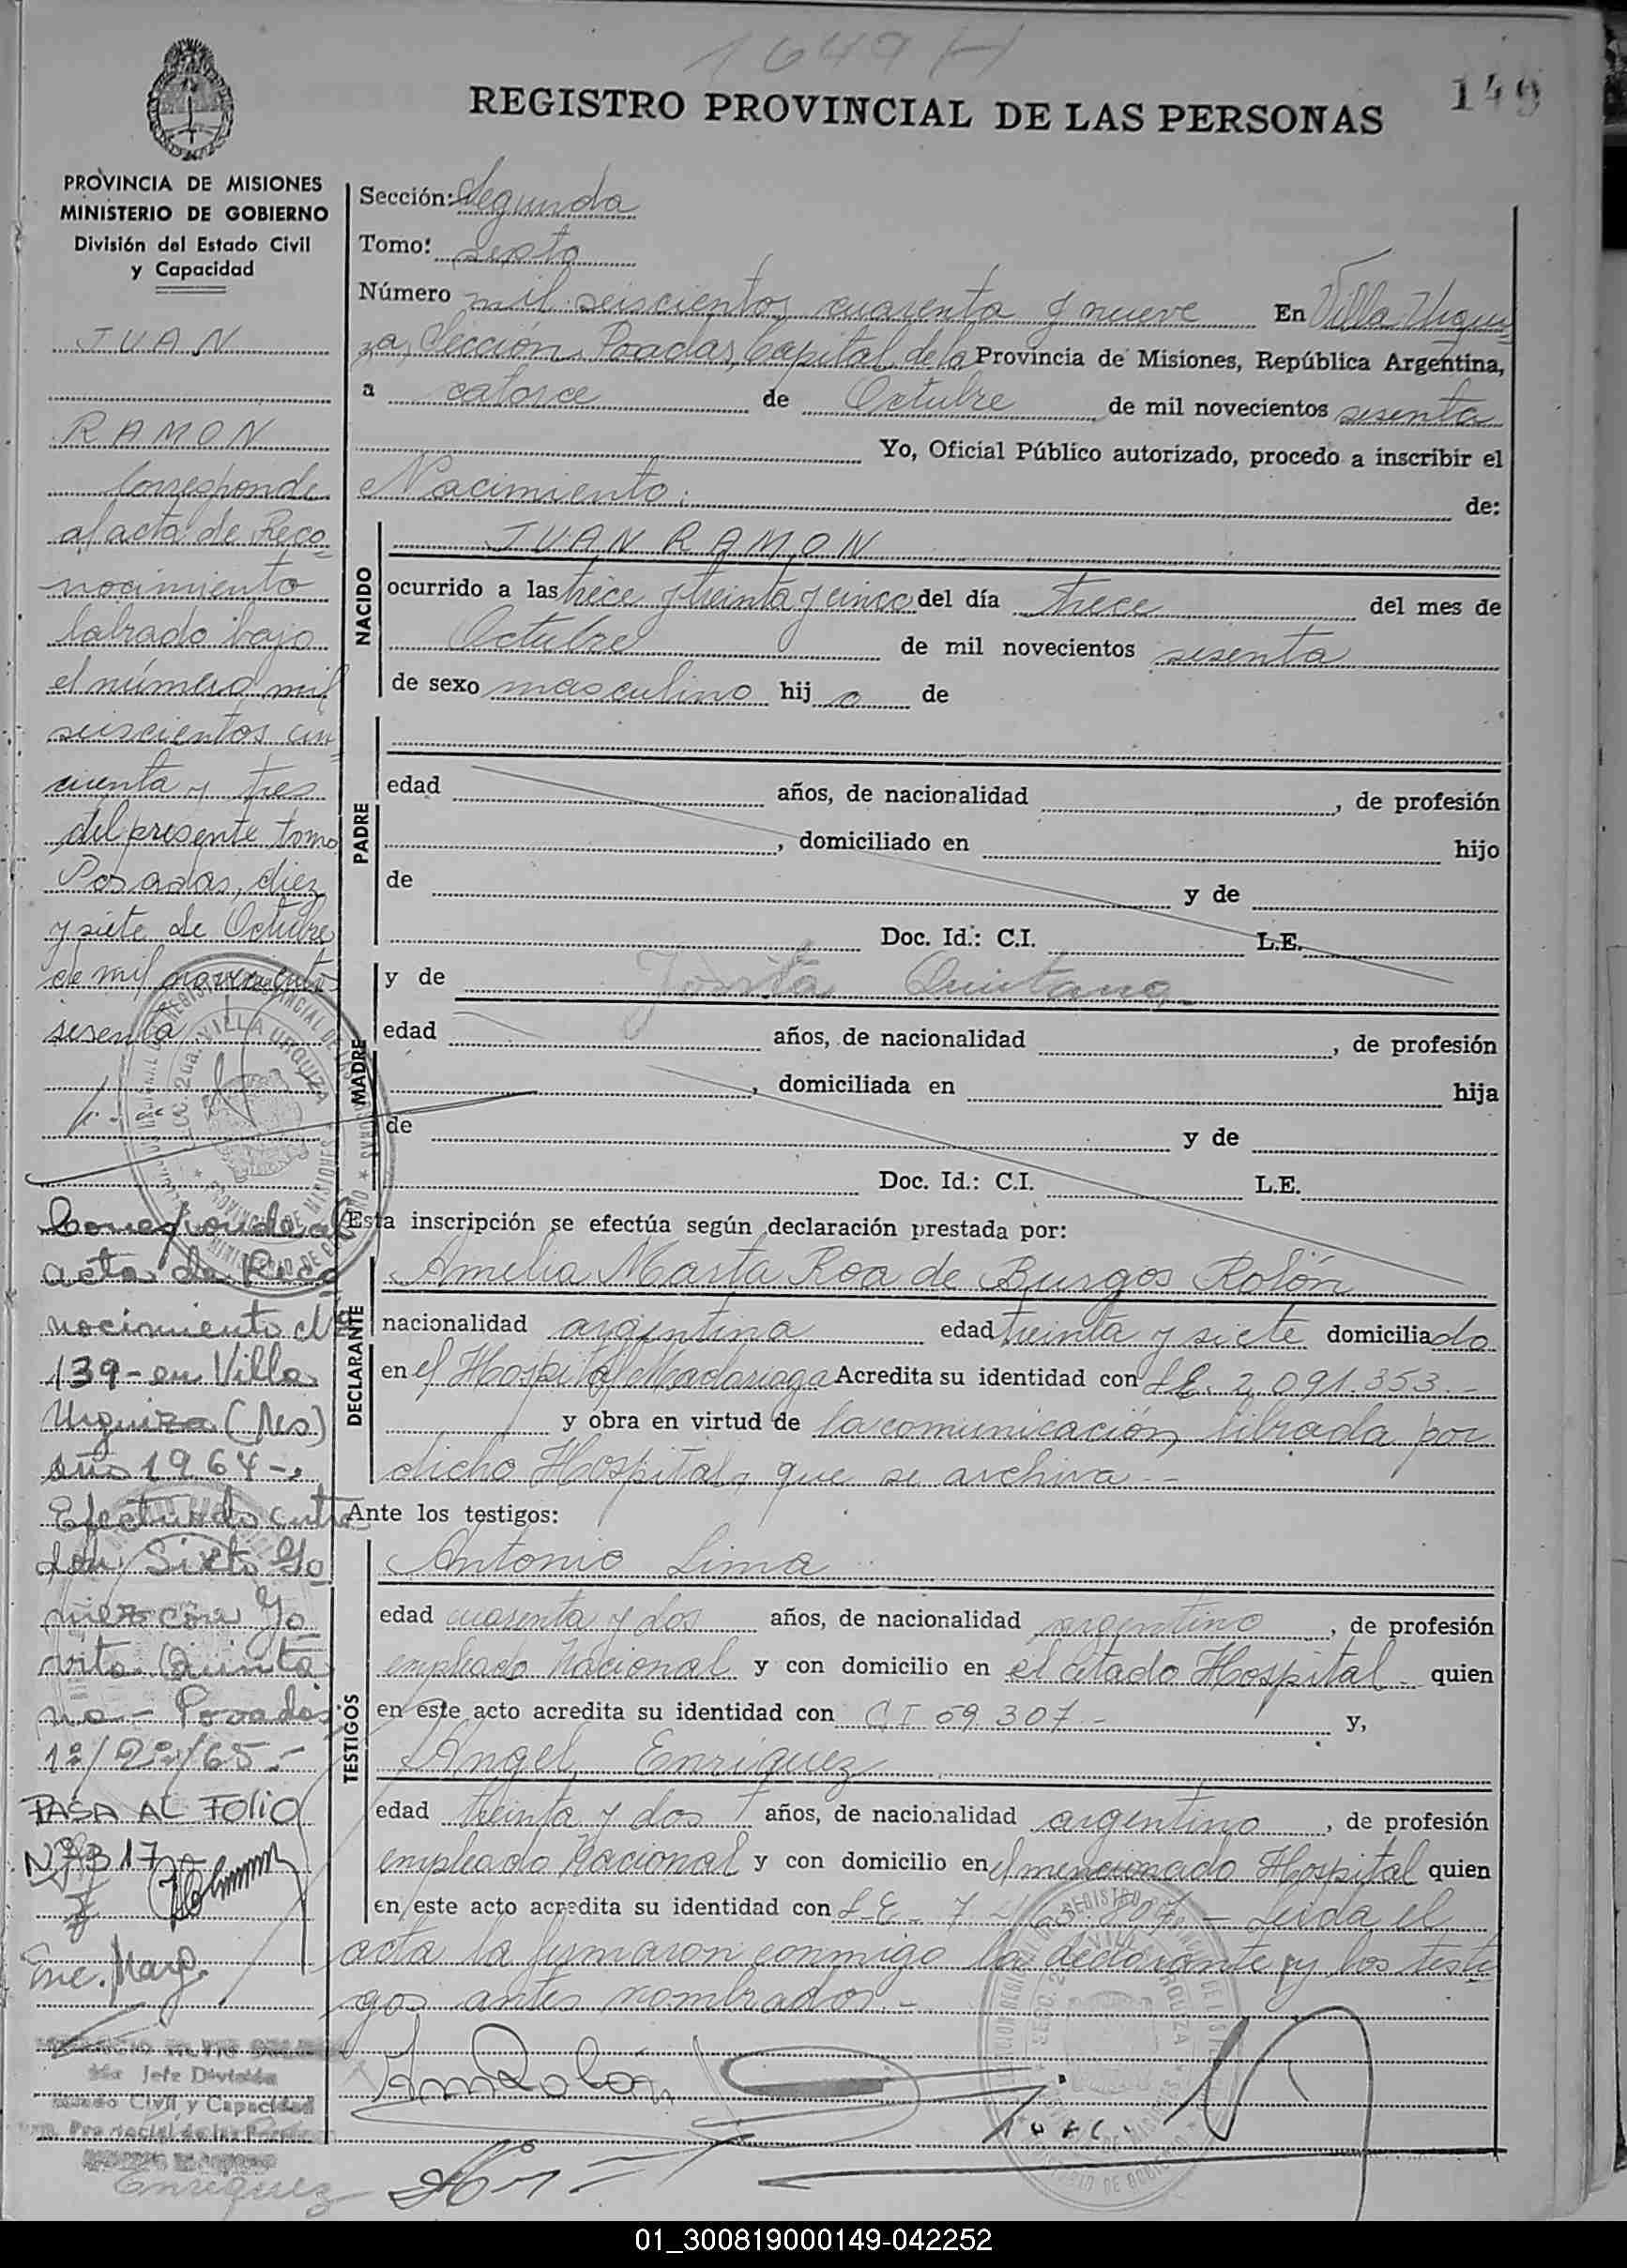 1649 H
REGISTRO PROVINCIAL DE LAS PERSONAS
149
PROVINCIA DE MISIONES
MINISTERIO DE GOBIERNO
División del Estado Civil
y Capacidad
JUAN
RAMON
Corresponde
al acta de Reco
nocimiento
labrado bajo
el número mil
seiscientos cin
cuenta y tres
del presente tomo
Posadas, diez
y siete de Octubre
de mil novecientos
sesenta
Corresponde al
acta de Reco
nocimiento N°
139 - en Villa
Urquiza (Mnes)
año 1964 -
Efectuado entre
don Sixto Go
mez con Jo
vita Quinta
na - Posadas
12/22/65.-
PASA AL FOLIO
Nº 317
Enc. Marg.
Jefe División
Estado Civil y Capacidad
Sección: Segunda
Tomo: sexto
Número mil seiscientos cuarenta y nueve En Villa Urqui
za, Sección, Posadas, Capital de la Provincia de Misiones, República Argentina,
a catorce de Octubre de mil novecientos sesenta
Yo, Oficial Público autorizado, procedo a inscribir el
Nacimiento: de:
NACIDO
JUAN RAMON
ocurrido a las trece y treinta y cinco del día trece del mes de
Octubre de mil novecientos sesenta
de sexo masculino hij o de
PADRE
edad años, de nacionalidad , de profesión
, domiciliado en hijo
de y de
Doc. Id.: C.I. L.E.
MADRE
y de Jovita Quintana
edad años, de nacionalidad , de profesión
, domiciliada en hija
de y de
Doc. Id.: C.I. L.E.
Esta inscripción se efectúa según declaración prestada por:
DECLARANTE
Amelia Marta Roa de Burgos Rolón
nacionalidad argentina edad treinta y siete domiciliada
en el Hospital Madariaga Acredita su identidad con L.E. 2.091.353.-
y obra en virtud de la comunicación librada por
dicho Hospital, que se archiva.-
Ante los testigos:
TESTIGOS
Antonio Lima
edad cuarenta y dos años, de nacionalidad argentino, de profesión
empleado Nacional y con domicilio en el citado Hospital quien
en este acto acredita su identidad con C I 59.307.- y,
Angel Enriquez
edad treinta y dos años, de nacionalidad argentino, de profesión
empleado Nacional y con domicilio en el mencionado Hospital quien
en este acto acredita su identidad con L E - 7 - Leida el
acta la firmaron conmigo la declarante y los testi
gos antes nombrados.-
AmRolón
Enriquez
01_300819000149-042252